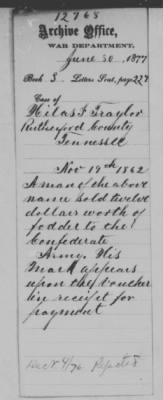 12768
Archive Office,
WAR DEPARTMENT,
June 30, 1877
Book 3. Letters Sent, page 227
Case of
Hilas F Traylor
Rutherford County
Tennessee
Nov 19th 1862
A man of the above
name sold twelve
dollars worth of
fodder to the
Confederate
Army. His
mark appears
upon the voucher
in receipt for
payment
Dec 4/76 Rejected